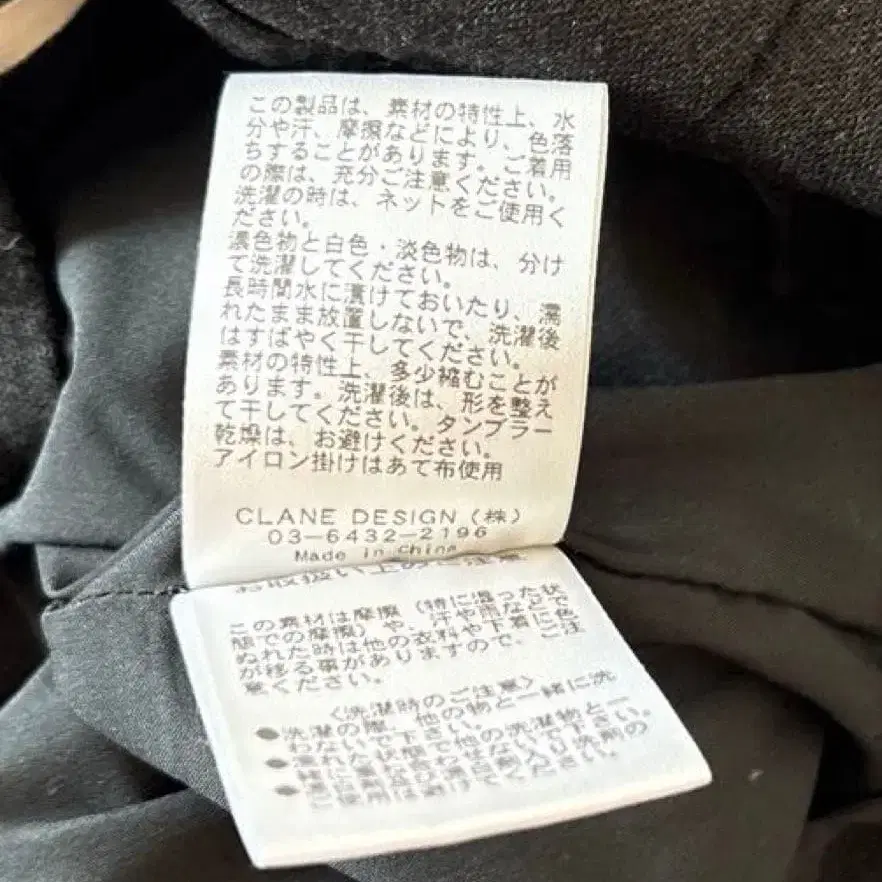 この製品は、素材の特性上、水
分や汗、摩擦などにより、色落
ちすることがあります。ご着用
の際は、充分ご注意ください。
洗濯の時は、ネットをご使用く
ださい。
濃色物と白色・淡色物は、分け
て洗濯してください。
長時間水に漬けておいたり、濡
れたまま放置しないで、洗濯後
はすばやく干してください。
素材の特性上、多少縮むことが
あります。洗濯後は、形を整え
て干してください。タンブラー
乾燥は、お避けください。
アイロン掛けはあて布使用
CLANE DESIGN（株）
03-6432-2196
Made in China
お取扱い上のご注意
この素材は摩擦（特に湿った状
態での摩擦）や、汗や雨などで
ぬれた時は他の衣料や下着に色
が移る事がありますので、ご注
意ください。
〈洗濯時のご注意〉
●洗濯の際、他の物と一緒に洗
わないで下さい。
●濡れた状態で他の洗濯物と一
緒に重ね合わせないで下さい。